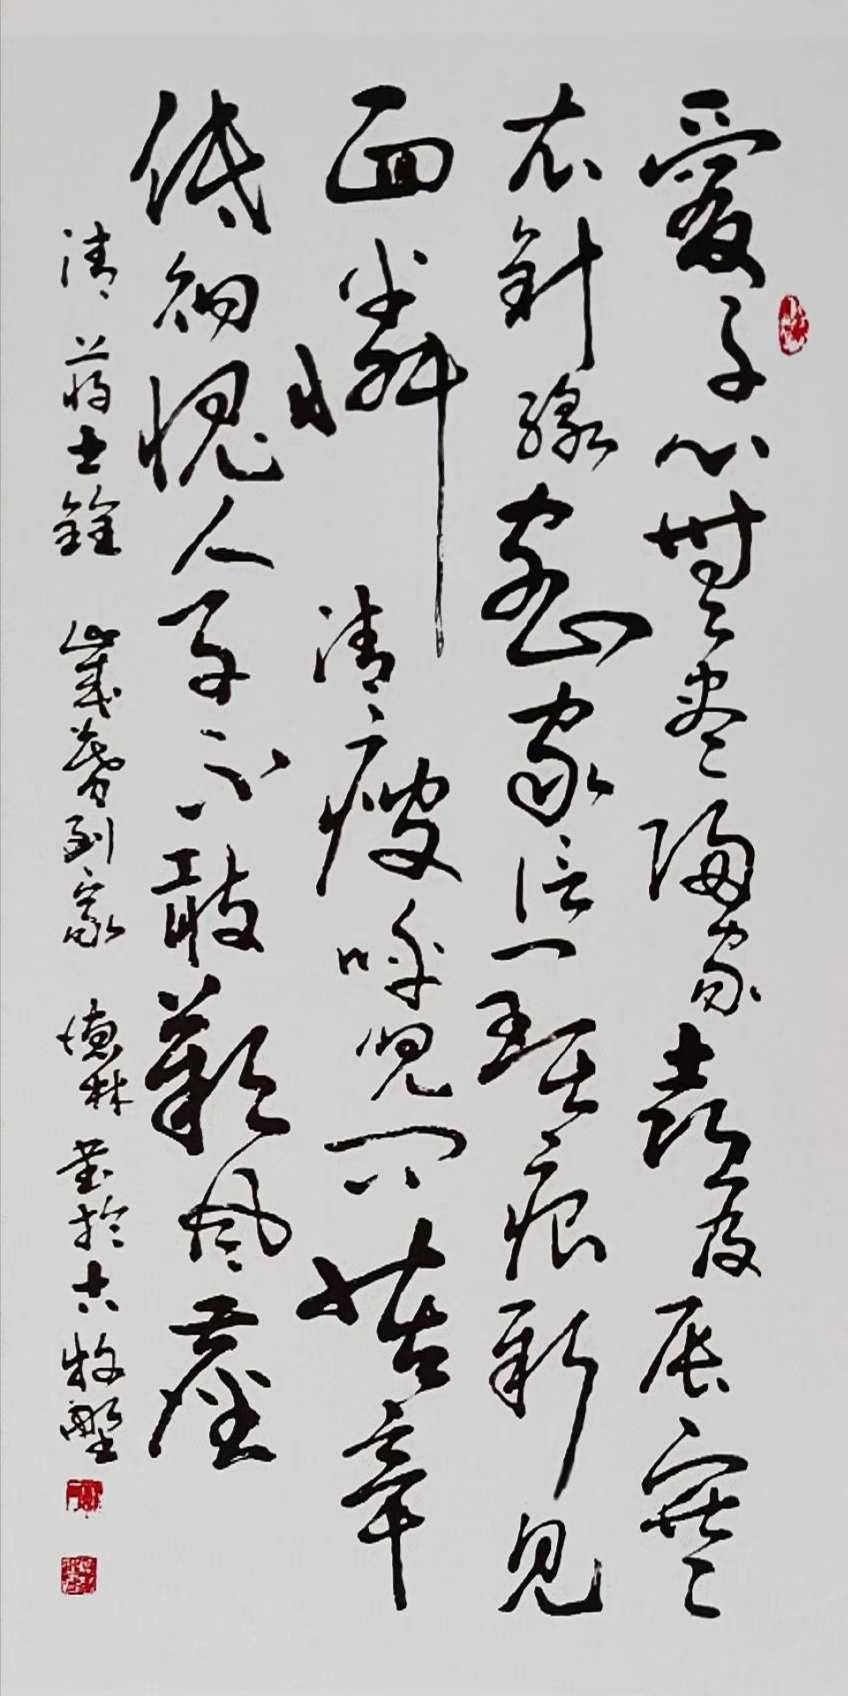 愛子心無盡歸家喜及辰寒
衣針線密家信墨痕新見
面憐清瘦呼兒問苦辛
低徊愧人子不敢歎風塵
清蔣士銓 歲暮到家 德林書於古牧野